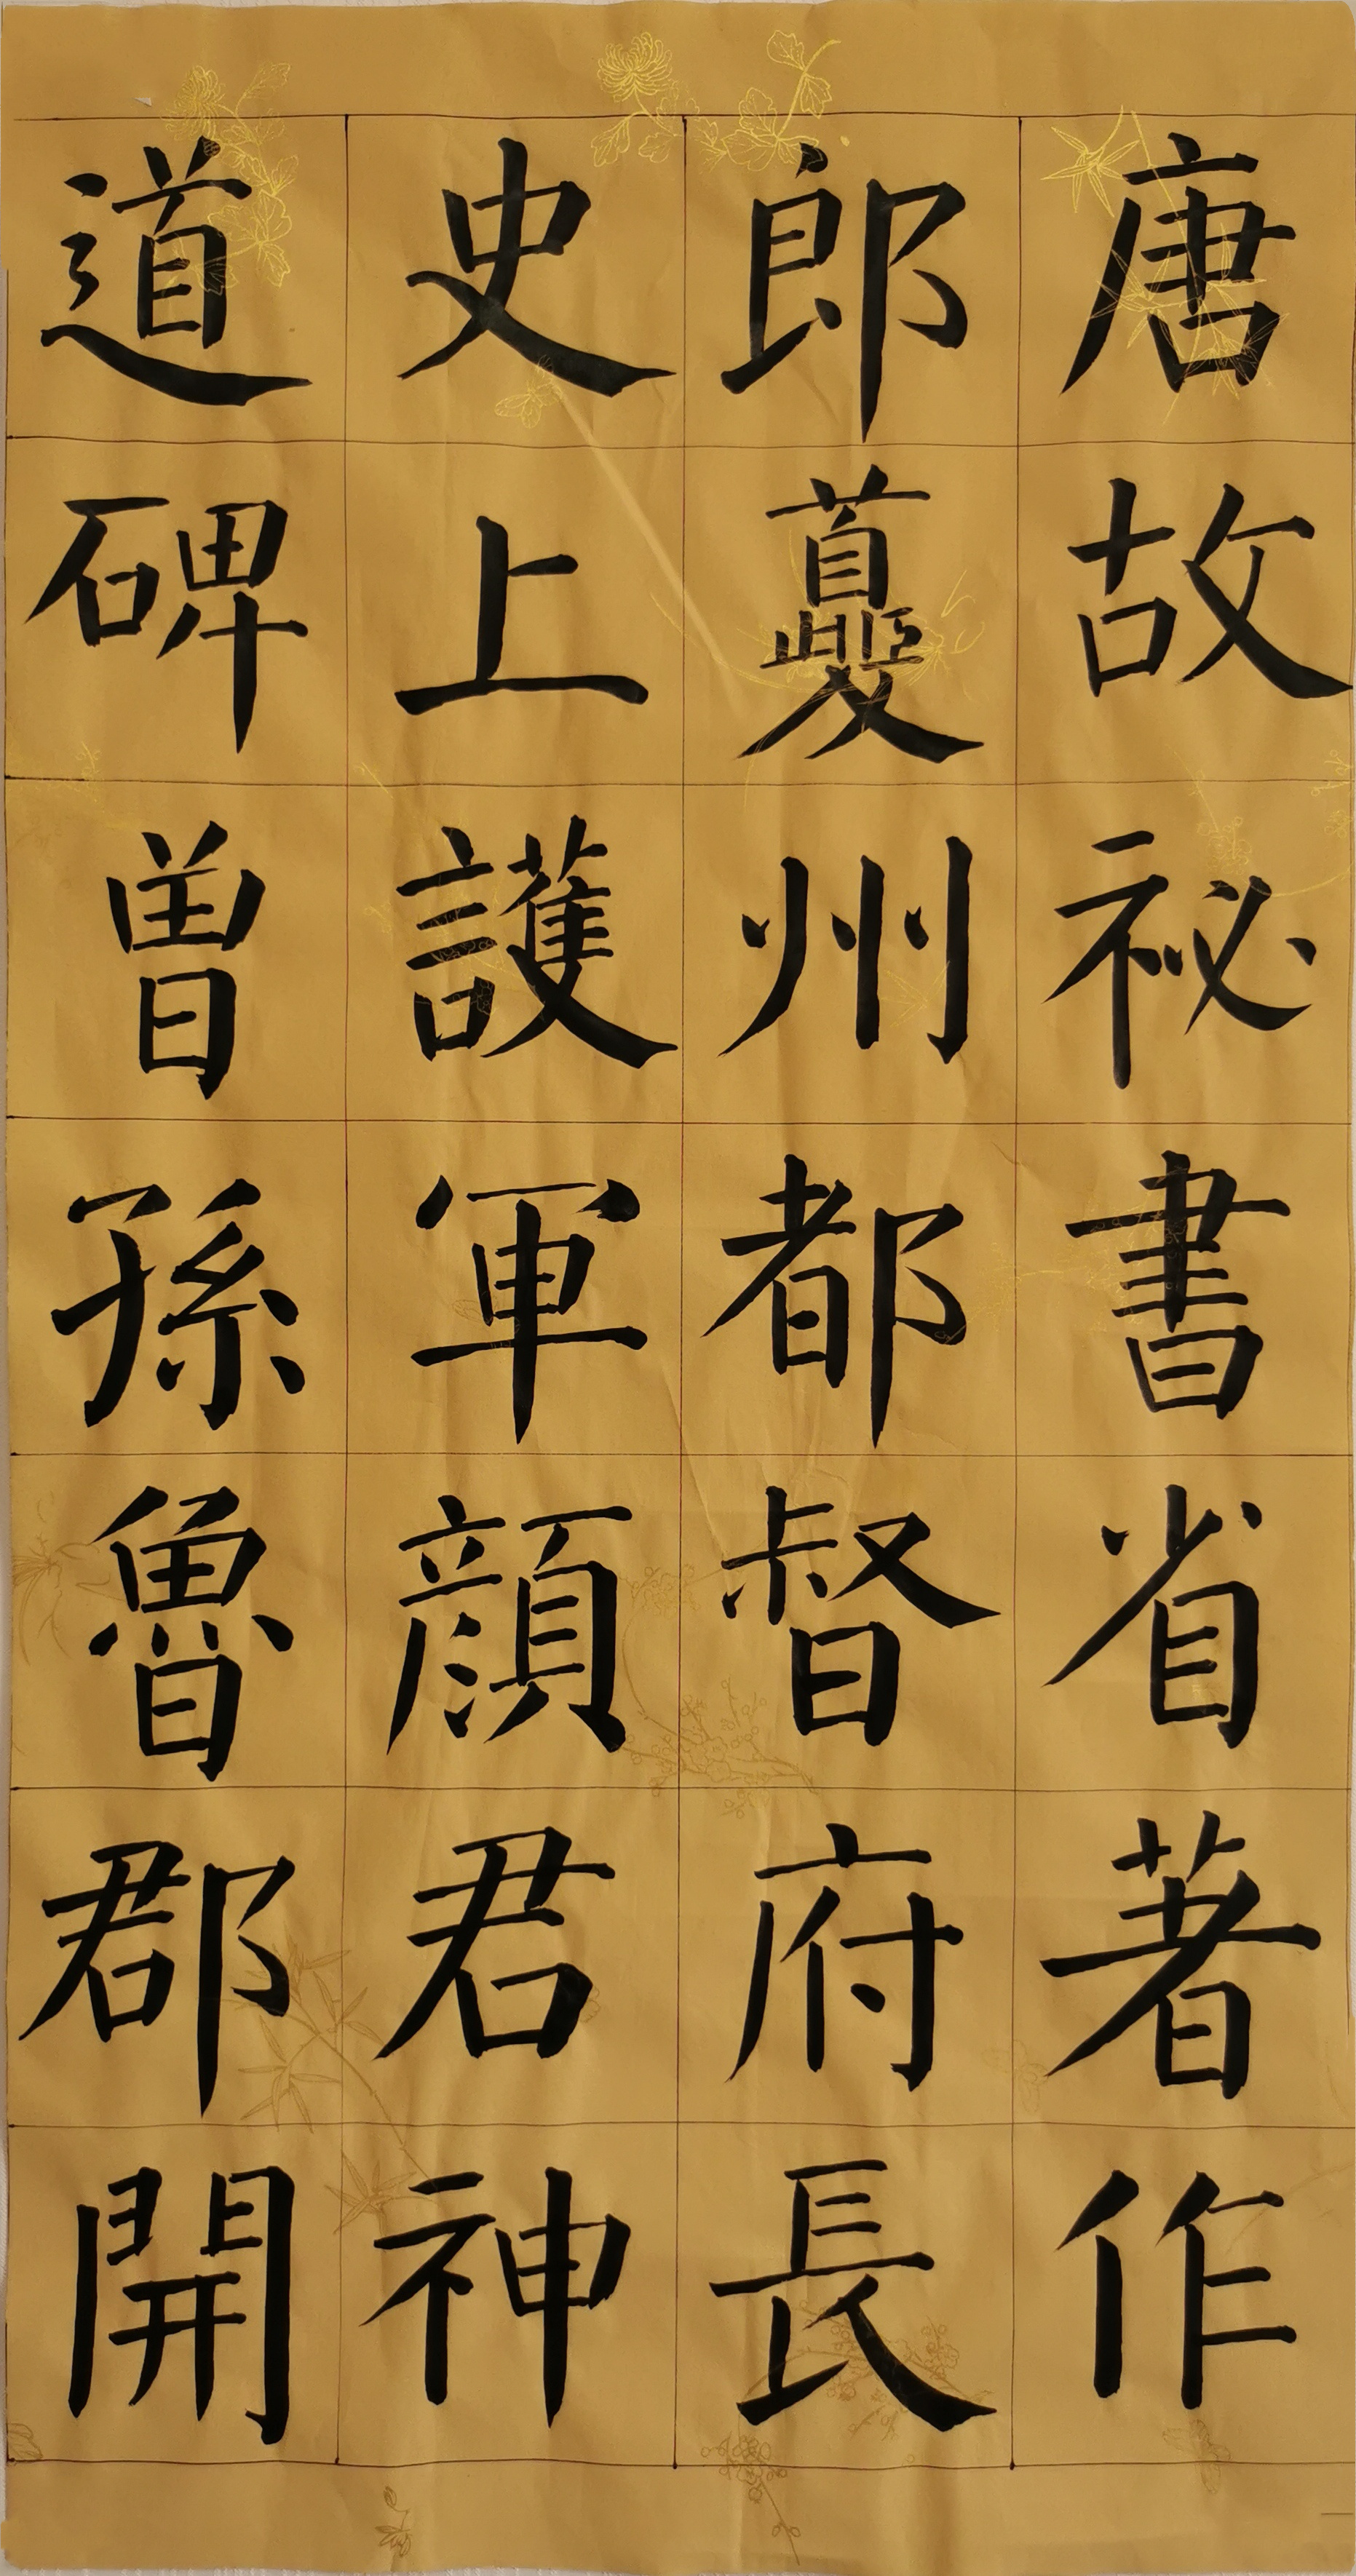 唐故祕書省著作
郎夔州都督府長
史上護軍顏君神
道碑曾孫魯郡開